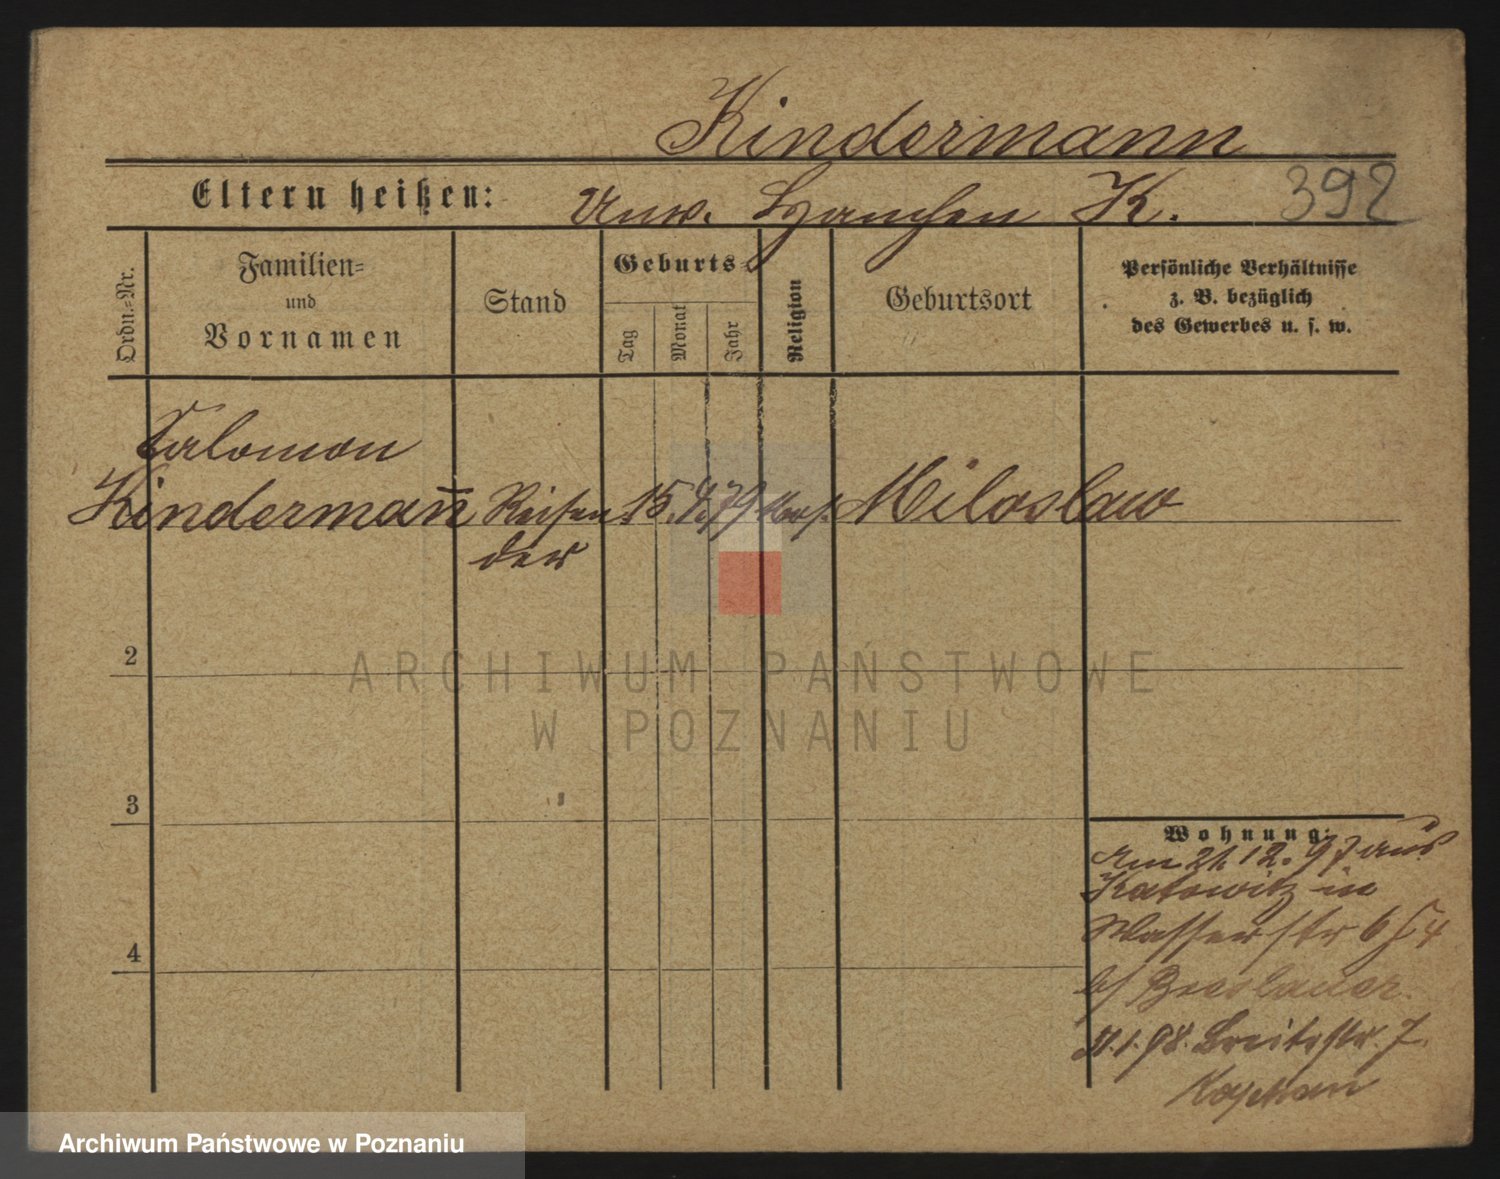 Kindermann
Eltern heißen: Unv. Hanchen K. 392
Ordn.-Nr.
Familien- und Vornamen
Stand
Geburts-
Tag Monat Jahr
Religion
Geburtsort
Persönliche Verhältnisse
z. B. bezüglich
des Gewerbes u. s. w.
Salomon
Kindermann Reisen 15. 4. 79 mos. Miloslaw
der
2
ARCHIWUM PAŃSTWOWE
W POZNANIU
3
Wohnung:
Am 21. 12. 97 aus
Kattowitz in
Wasserstr 6
b/ Breslauer.
1. 98. Breitestr. 7.
4
Archiwum Państwowe w Poznaniu